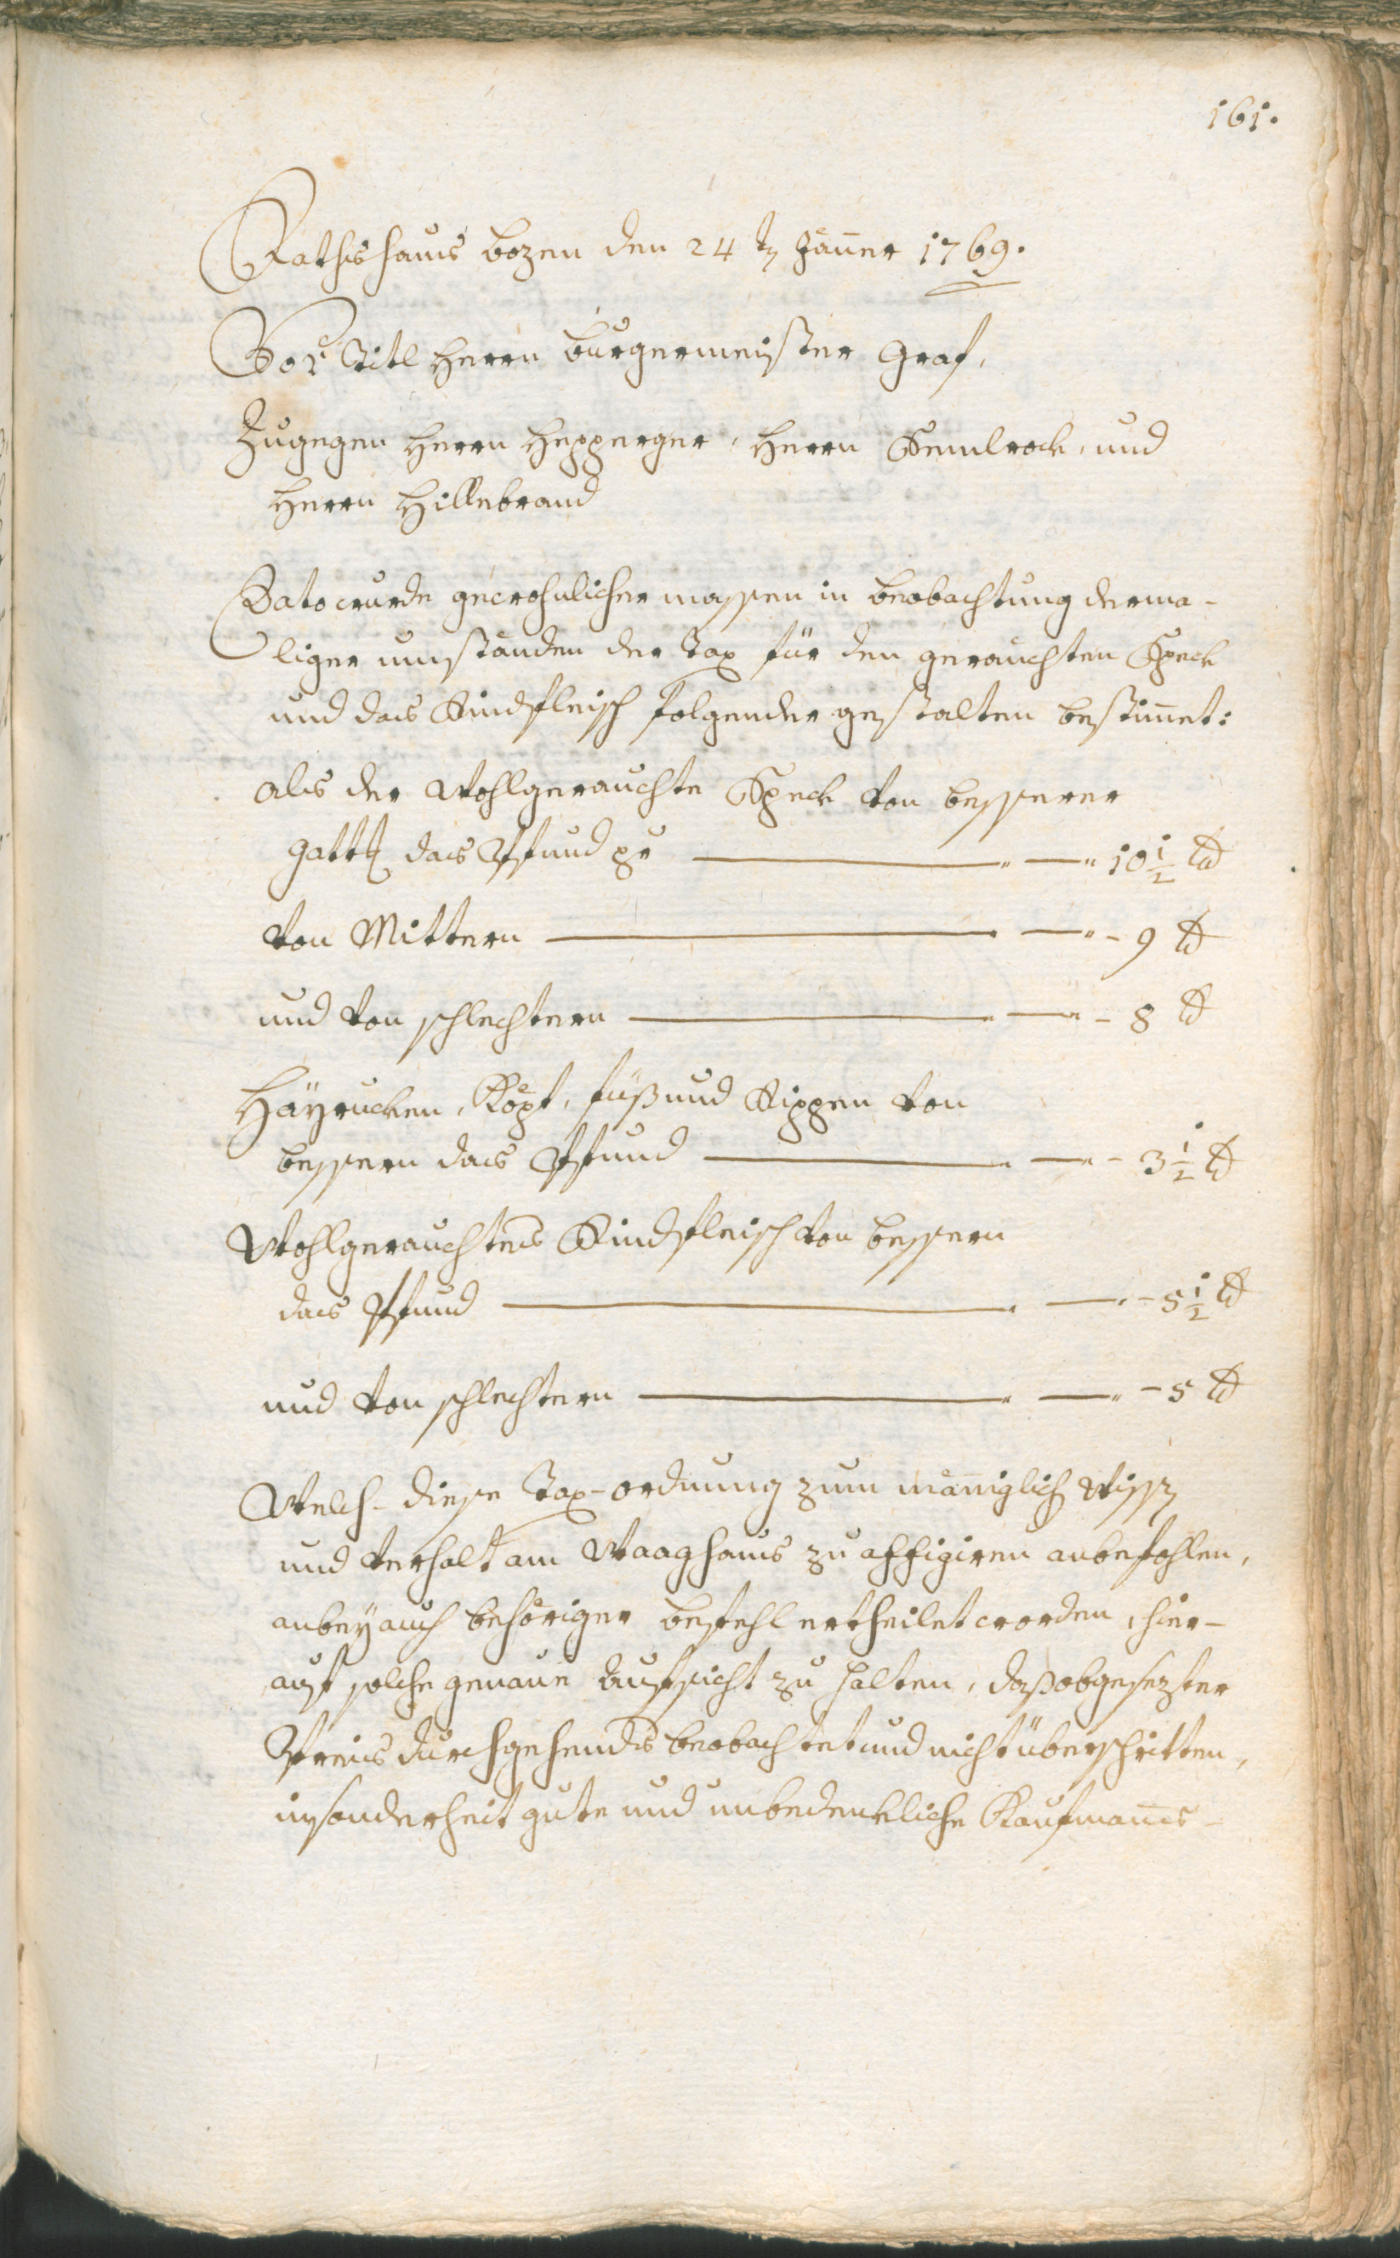 161.
Rathshaus Bozen den 24tn Jäner 1769.
Vor Titl Herrn Burgermeister Graf,
Zugegen Herrn Hepperger, Herrn Stemlrock, und
Herrn Hillebrand
Dato wurde gewohnlicher massen in beobachtung derma-
liger umständen der Tax für den gerauchten Speck
und das Rindfleisch folgender gestalten bestimet:
als der Wohlgerauchte Speck von besserer
gattg das Pfund pr ——— " —— " 10 1/2 kr
von Mittern ——— " —— " - 9 kr
und von schlechtern ——— " —— " - 8 kr
Häyrucken, Köpf, füß und Rippen von
bessern das Pfund ——— " —— " - 3 1/2 kr
Wohlgerauchtes Rindfleisch von bessern
das Pfund ——— " —— " - 5 1/2 kr
und von schlechtern ——— " —— " - 5 kr
Welch-diese Tax-ordnung zum mäniglich Wissen
und verhalt am Waaghaus zu affigiren anbefohlen,
anbey auch behöriger befehl ertheilet worden, hier-
auf solche genaue Aufsicht zu halten, daß obgesezter
Preis durchgehends beobachtet und nicht überschritten,
insonderheit gute und unbedenkliche Kaufmans-